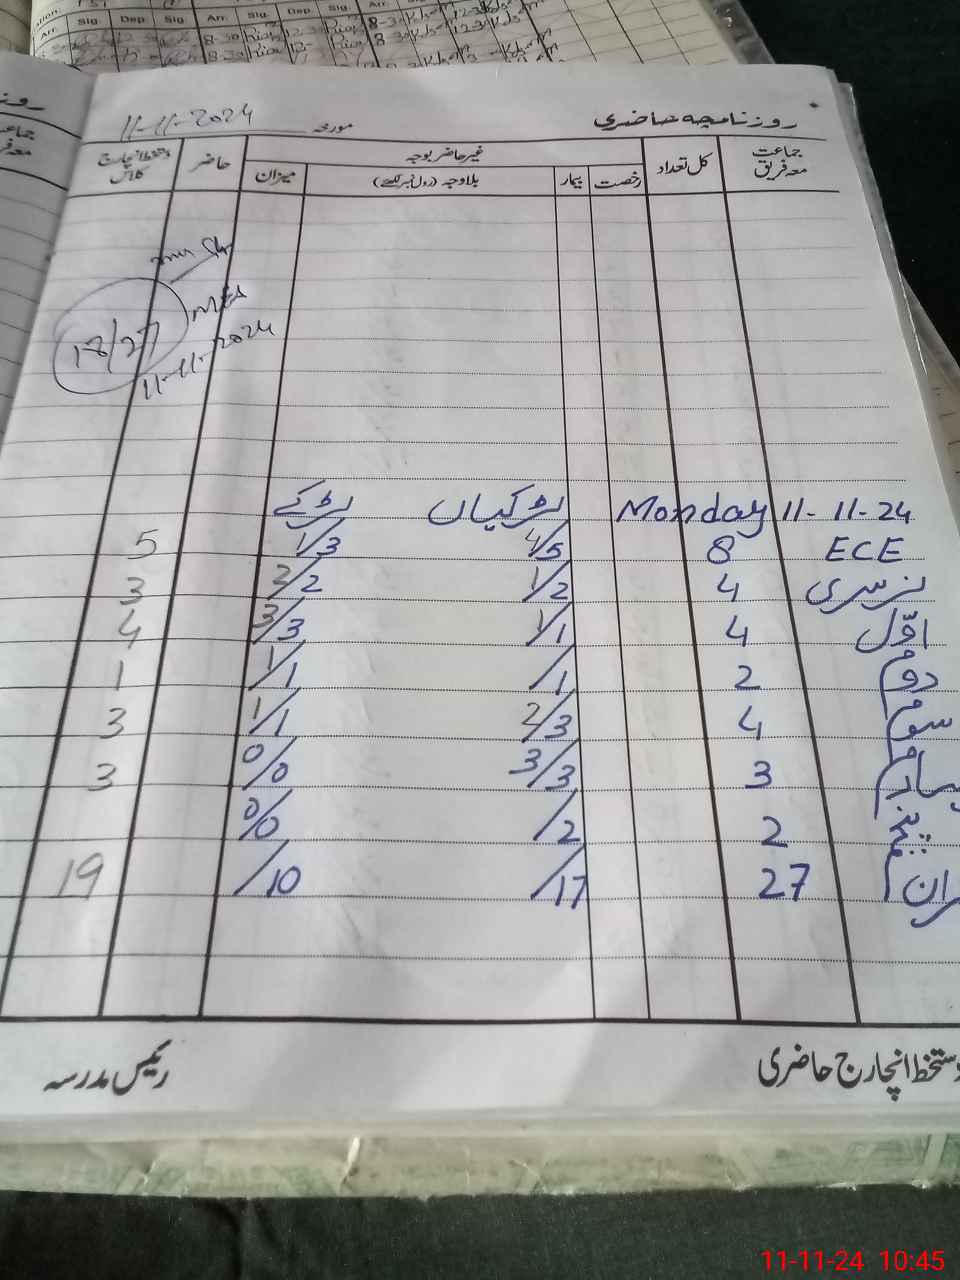 Sig. Dep. Sig. Arr. Sig. Dep. Sig. Arr.
روزنامچہ حاضری
مورخہ 11-11-2024
جماعت معہ فریق کل تعداد غیر حاضر بوجہ حاضر دستخط انچارج کلاس
رخصت بیمار بلاوجہ (رول نمبر لکھئے) میزان
18/27
MEA
11-11-2024
Monday 11-11-24 لڑکیاں لڑکے
ECE 8 4/5 1/3 5
نرسری 4 1/2 2/2 3
اوّل 4 1/1 3/3 4
دوم 2 /1 1/1 1
سوم 4 2/3 1/1 3
چہارم 3 3/3 0/0 3
پنجم 2 /2 0/0
میزان 27 /17 /10 19
دستخط انچارج حاضری رئیس مدرسہ
11-11-24 10:45